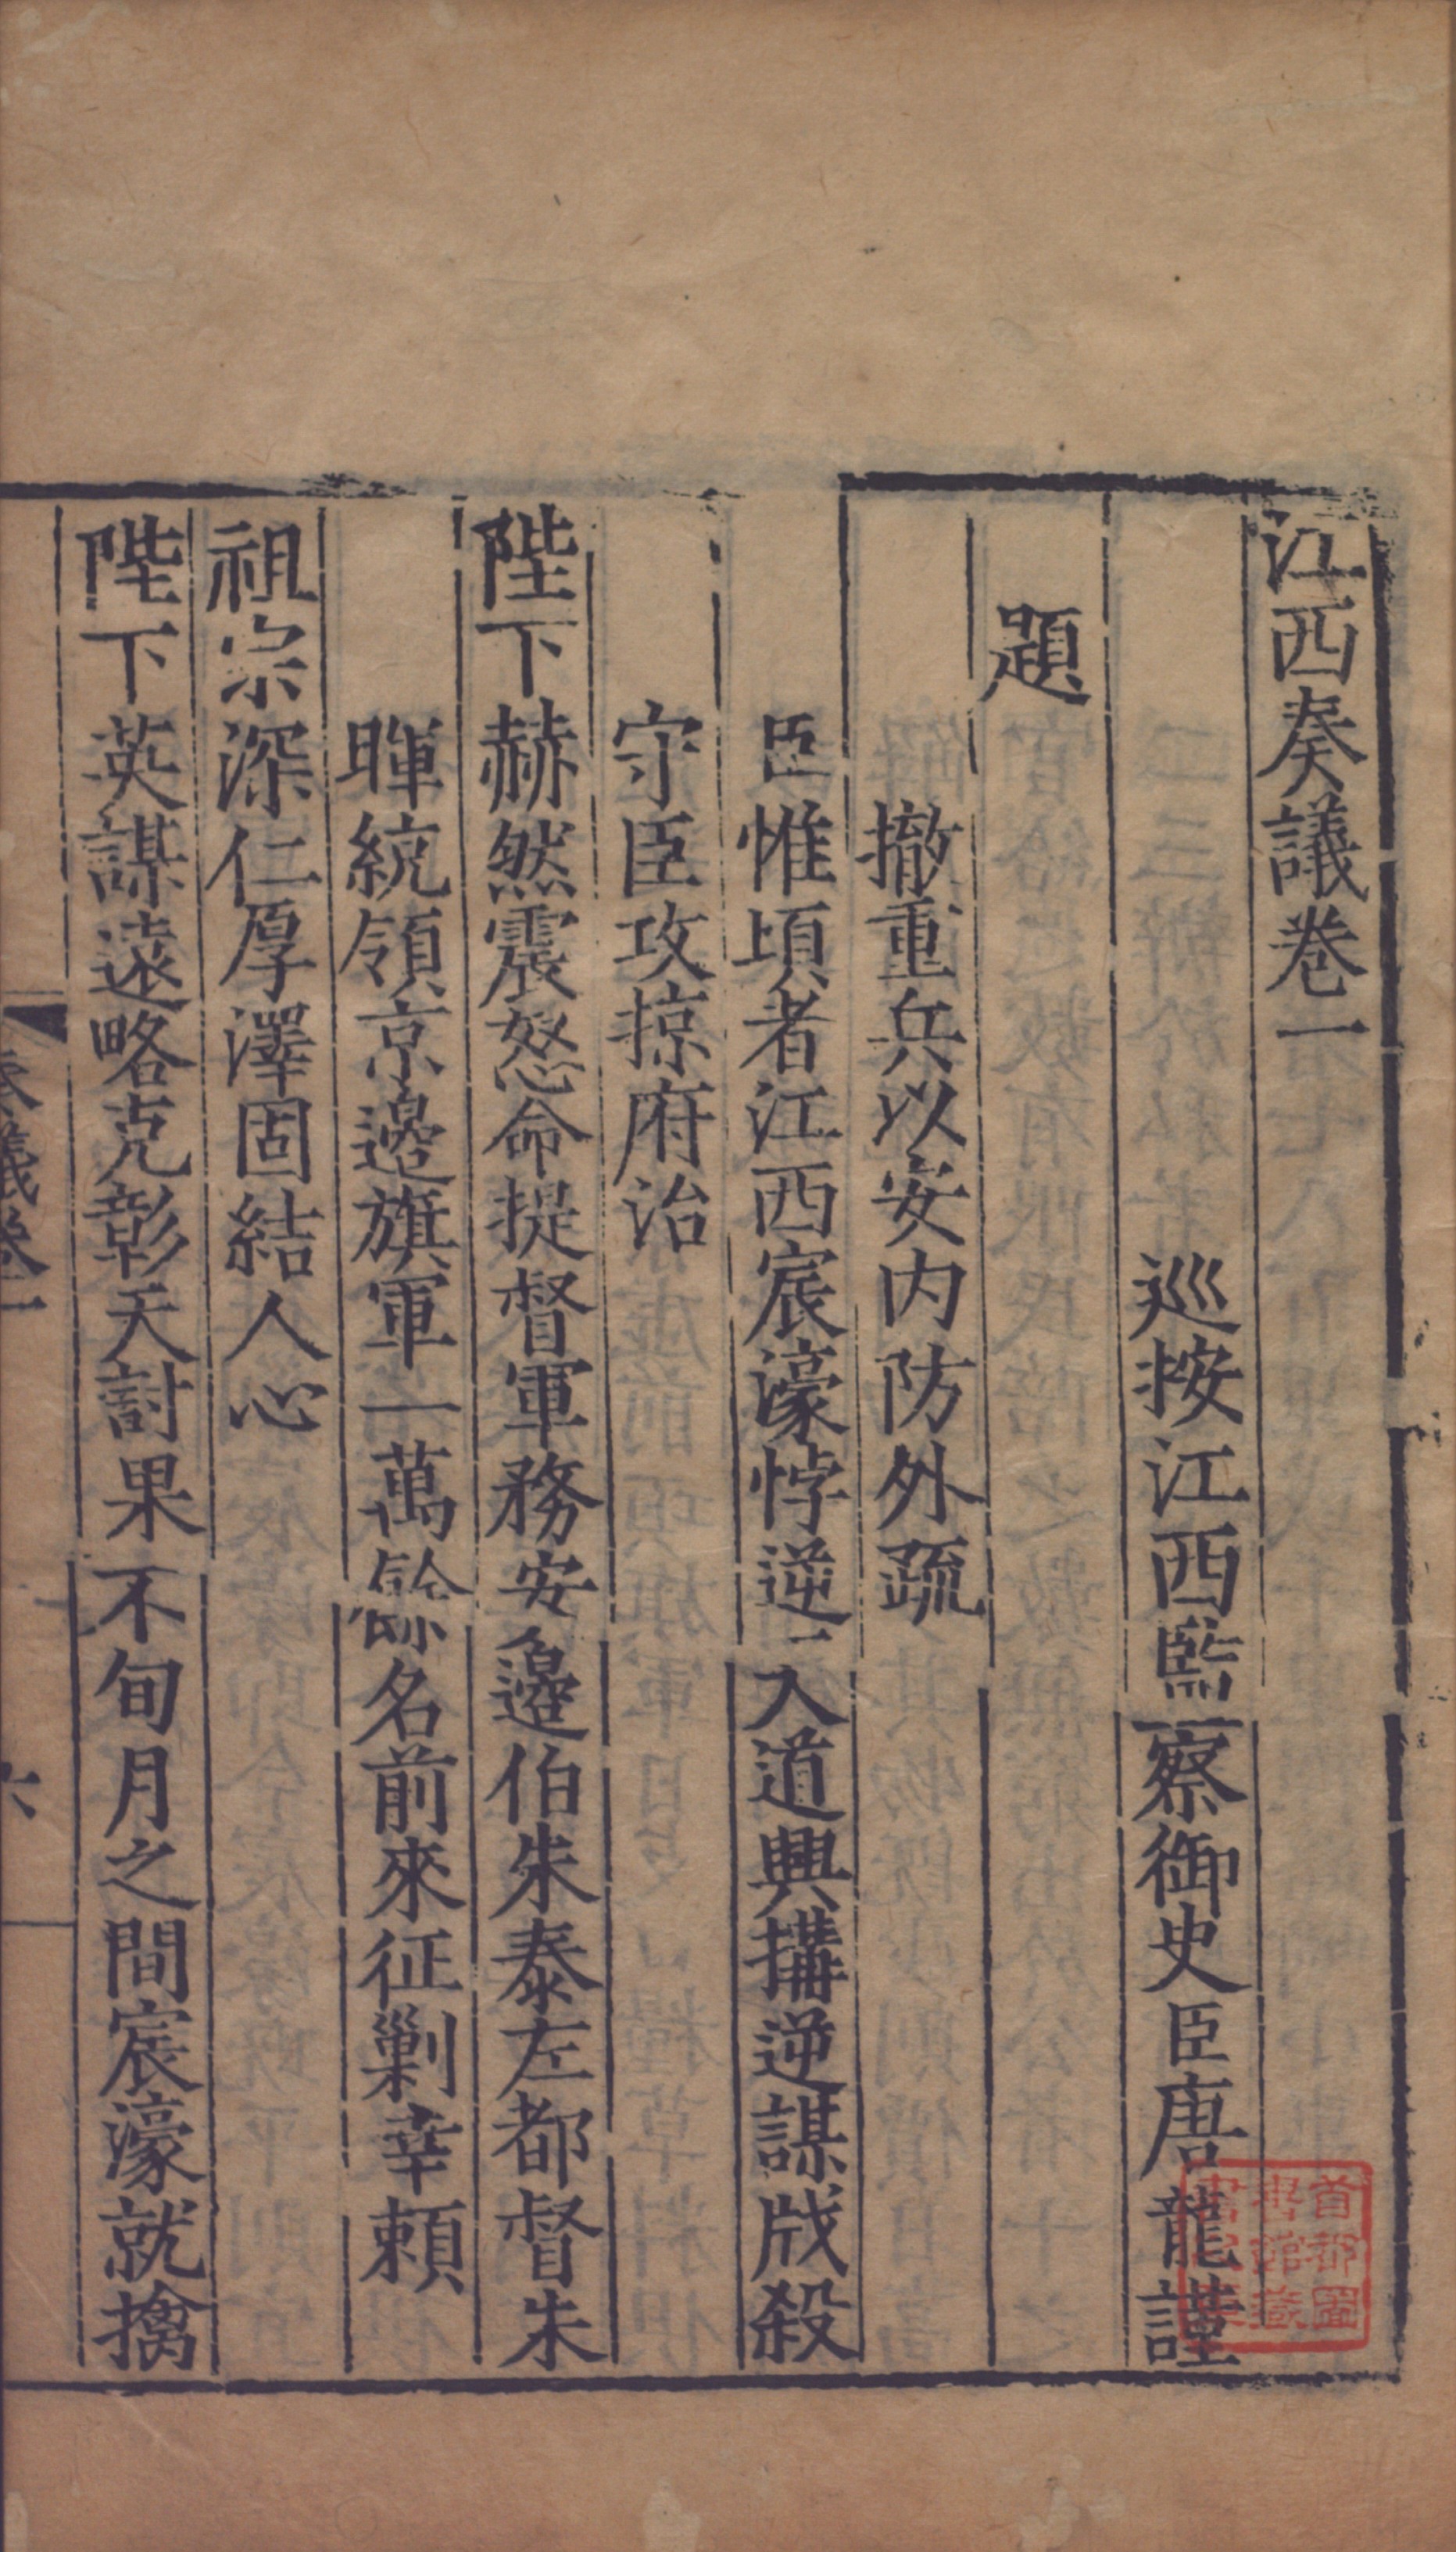 江西奏議卷一
巡按江西監察御史臣唐龍謹
題
撤重兵以安内防外疏
臣惟頃者江西宸濠悖逆入道興搆逆謀戕殺
守臣攻掠府治
陛下赫然震怒命提督軍務安邉伯朱泰左都督朱
暉統領京邉旗軍一萬餘名前來征剿幸頼
祖宗深仁厚澤固結人心
陛下英謀遠略克彰天討果不旬月之間宸濠就擒
奏議卷一
六
首都圖
書館藏